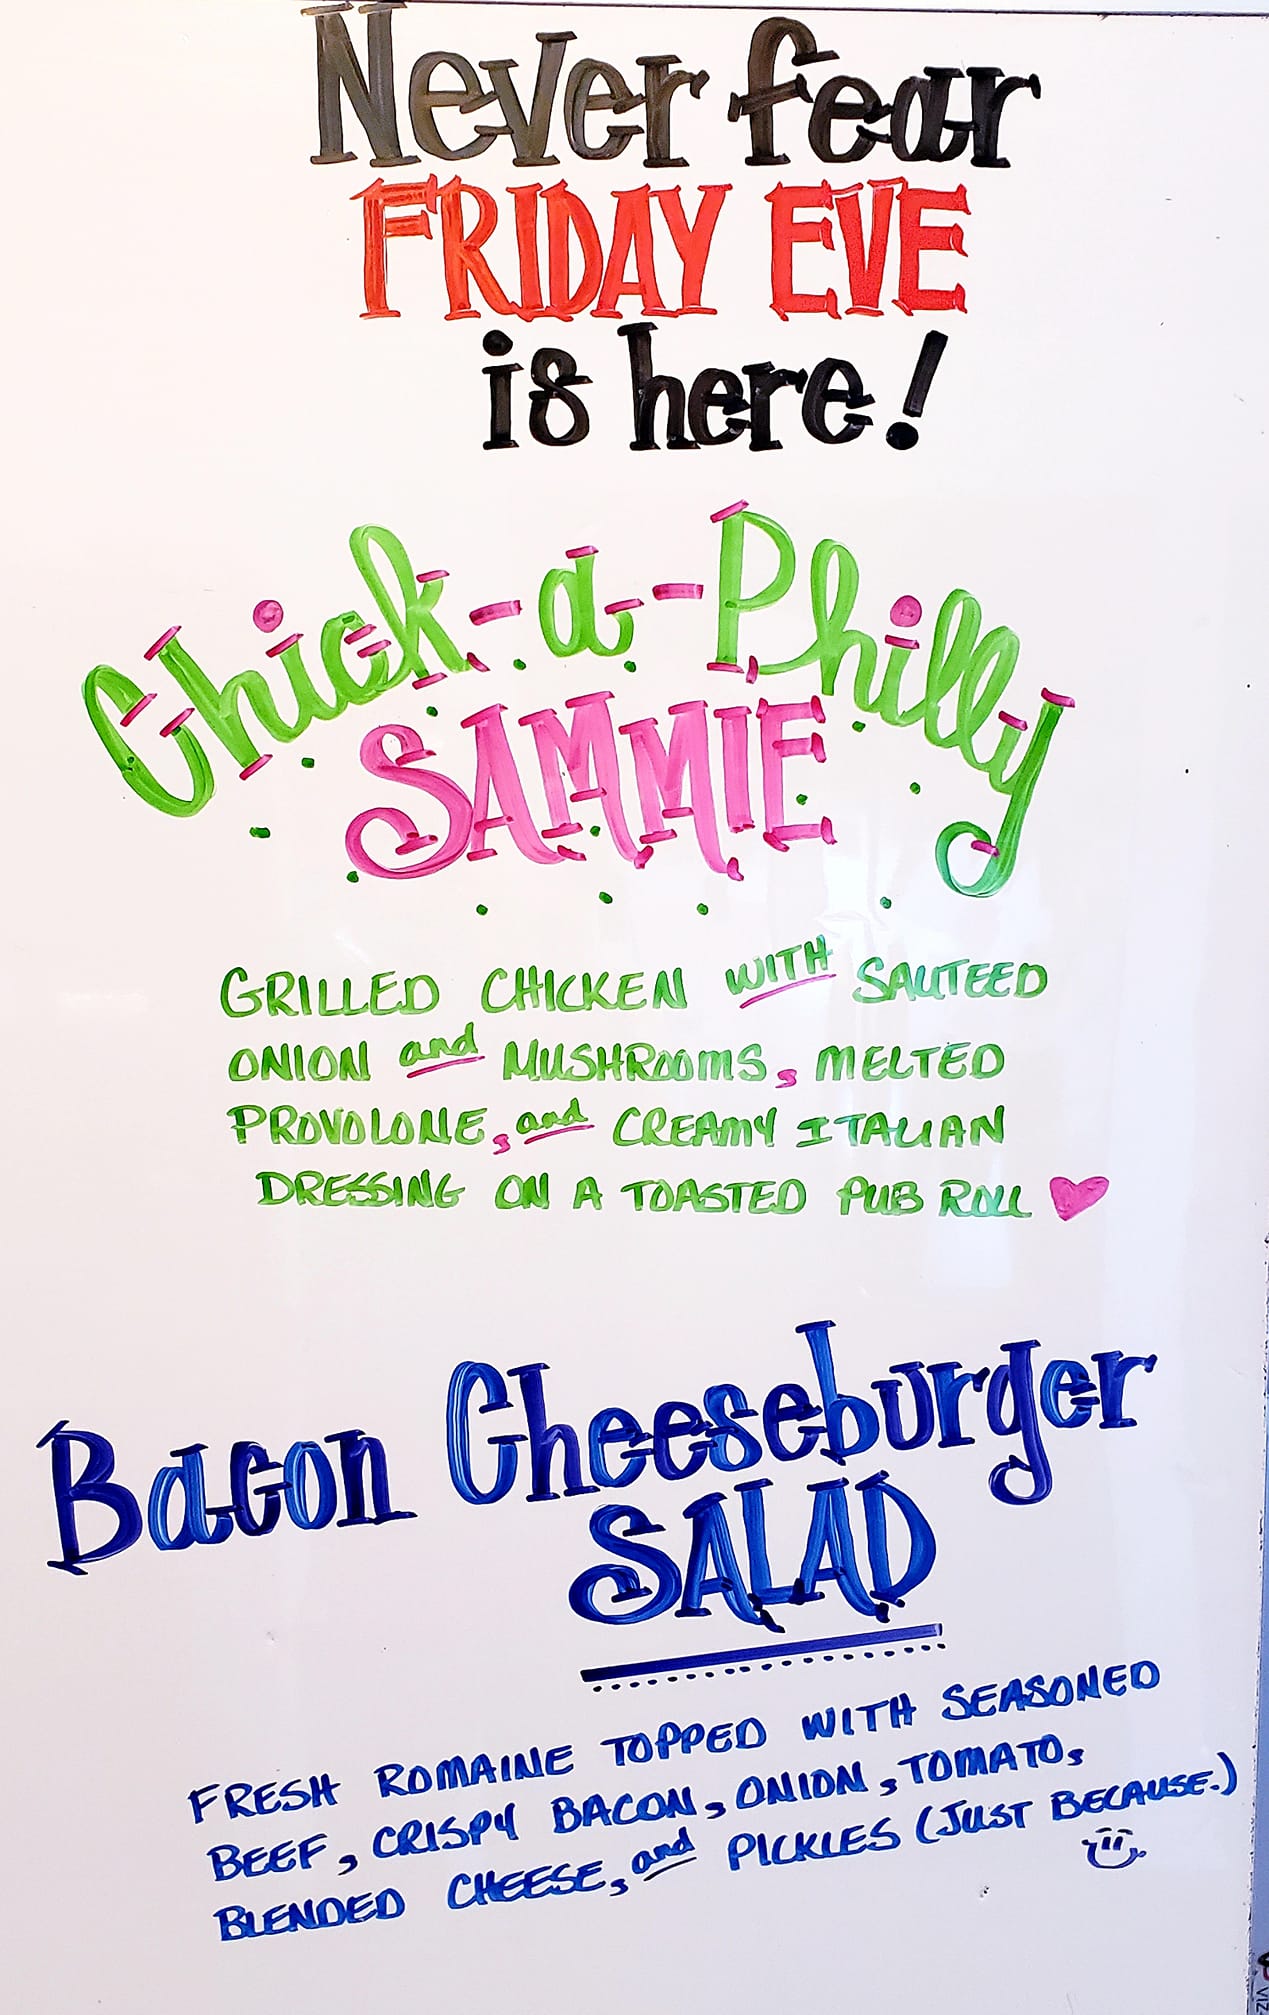 Never fear
FRIDAY EVE
is here!
Chick-a-Philly
SAMMIE
GRILLED CHICKEN WITH SAUTEED
ONION and MUSHROOMS, MELTED
PROVOLONE, and CREAMY ITALIAN
DRESSING ON A TOASTED PUB ROLL
Bacon Cheeseburger
SALAD
FRESH ROMAINE TOPPED WITH SEASONED
BEEF, CRISPY BACON, ONION, TOMATO,
BLENDED CHEESE, and PICKLES (JUST BECAUSE.)